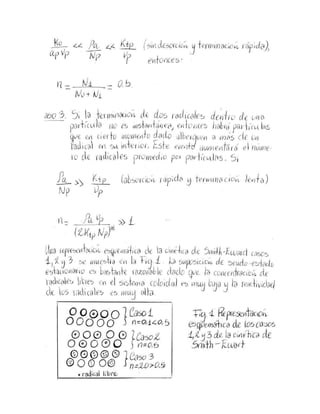 Ko/apVp << Pa/Np << Ktp/Vp (sin desorción y terminación rápida),
entonces:
n = N1/(No + N1) = 0.5
caso 3. Si la terminación de dos radicales dentro de una
partícula no es instantánea, entonces habrá partículas
que en cierto momento dado alberguen a más de un
radical en su interior. Este evento aumentará el número
de radicales promedio por partículas. Si
Pa/Np >> Ktp/Vp (absorción rápida y terminación lenta)
n = Pa Vp/(2Ktp Np)^α >> 1
Una representación esquemática de la cinética de Smith-Ewart casos
1, 2 y 3 se muestra en la Fig 1. La suposición de seudo-estado
estacionario es bastante razonable dado que la concentración de
radicales libres en el sistema coloidal es muy baja y la reactividad
de los radicales es muy alta.
Caso 1
n=0.1<0.5
Caso 2
n=0.5
Caso 3
n=2.0>0.5
• radical libre
Fig. 1 Representación
esquemática de los casos
1, 2 y 3 de la cinética de
Smith-Ewart